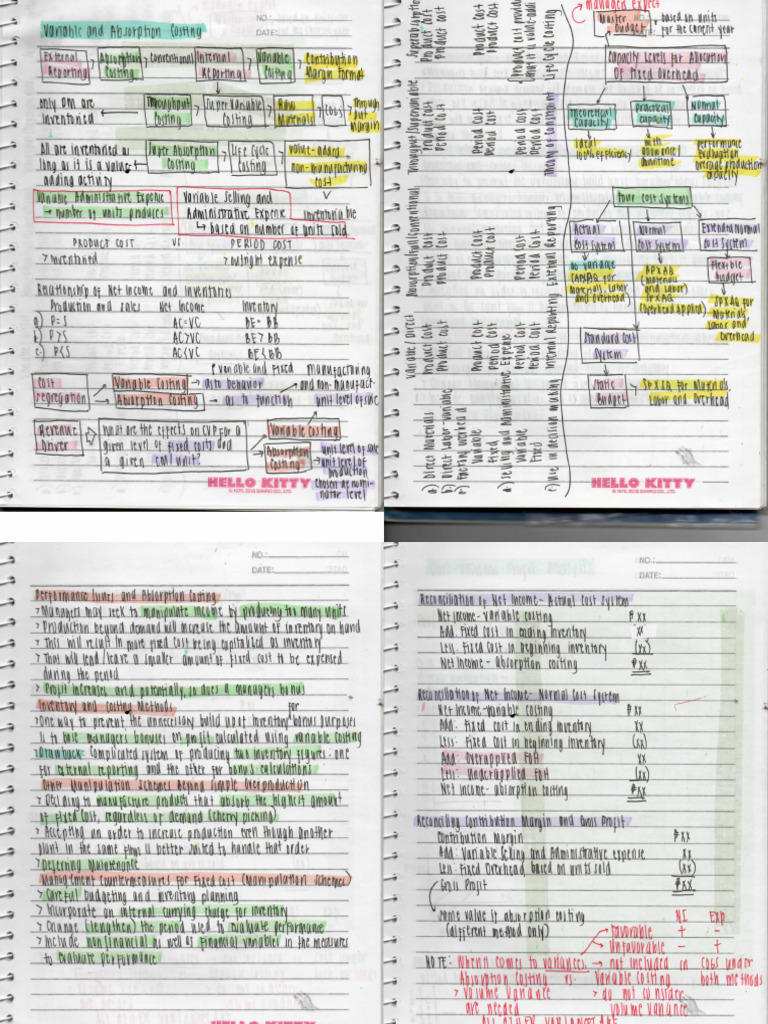 Variable and Absorption Costing
NO.:
DATE:
External Reporting
Absorption Costing
Conventional
Internal Reporting
Variable Costing
Contribution Margin format
only DM are inventoried
Throughput Costing
Supervariable Costing
Raw Materials
COGS
Throughput Margin
All are inventoried as long as it is a value-adding activity
Super Absorption Costing
Life Cycle Costing
value-added non-manufacturing cost
inventoriable
Variable Administrative Expense
→ number of units produces
Variable Selling and Administrative Expense
↳ based on number of units sold
PRODUCT COST VS PERIOD COST
> inventoried > outright expense
Relationship of Net Income and Inventories
Production and sales Net Income Inventory
a) P=S AC=VC BE=BB
b) P>S AC>VC BE>BB
c) P<S AC<VC BE<BB
Cost segregation
Variable Costing → as to behavior
Absorption Costing → as to function
variable and fixed
manufacturing and non-manufact-
unit level of sale
Revenue Driver
What are the effects on CVP for a given level of fixed costs and a given cost/unit?
Variable Costing
Absorption Costing
unit level of sale
unit level of production
chosen as nominator level
HELLO KITTY
managers expect
Master budget
based on units for the current year
Capacity Levels for Allocation of Fixed Overhead
Theoretical Capacity
Practical Capacity
Normal Capacity
ideal
100% efficiency
with allowance/downtime
performance evaluation
average production capacity
Four Cost Systems
Actual Cost System
Normal Cost System
Extended Normal Cost System
no variance
(APXAQ for Materials, Labor and Overhead)
APXAQ
(Materials and Labor)
SPXAQ
(Overhead Applied)
Flexible Budget
SPXAQ for Materials, Labor and Overhead
Standard Cost System
Static Budget
SPXSQ for Materials, Labor and Overhead
Variable/Direct
Absorption/Full/Conventional
Throughput/Supervariable
Superabsorption
a) Direct Materials Product Cost Product Cost Product Cost Product Cost
b) Direct Labor-variable Product Cost Product Cost Period Cost Product Cost
c) Factory overhead
Variable Product Cost Product Cost Period Cost Product Cost
Fixed Period Cost Product Cost Period Cost Product Cost
d) Selling and Administrative Expense
Variable Period Cost Period Cost Period Cost
Fixed Period Cost Period Cost Period Cost
e) Use in decision making Internal Reporting External Reporting Theory of Constraint Life Cycle Costing
HELLO KITTY
NO.:
DATE:
Performance Issues and Absorption Costing
> Managers may seek to manipulate income by producing too many units
> Production beyond demand will increase the amount of inventory on hand
> This will result in more fixed cost being capitalized as inventory
> That will lend/leave a smaller amount of fixed cost to be expensed
during the period
> Profit increases and potentially, so does a managers bonus
Inventory and Costing Methods for
> One way to prevent the unnecessary build up of inventory bonus purposes
is to base managers bonuses on profit calculated using variable costing
Drawback: Complicated system of producing two inventory figures: one
for external reporting and the other for bonus calculations
Other Manipulation Schemes Beyond Simple Overproduction
> Deciding to manufacture products that absorb the highest amount
of fixed cost, regardless of demand (cherry picking)
> Accepting an order to increase production even though another
plant in the same firm is better suited to handle that order
> Deferring Maintenance
Management countermeasures for Fixed Cost (Manipulation Schemes)
> Careful budgeting and inventory planning
> Incorporate an internal carrying charge for inventory
> Change (lengthen) the period used to evaluate performance
> Include nonfinancial as well as financial variables in the measures
to evaluate performance
HELLO KITTY
NO.:
DATE:
Reconciliation of Net Income- Actual Cost System
Net income-variable costing ₱ xx
Add: Fixed cost in ending inventory xx
Less: Fixed cost in beginning inventory (xx)
Net income - absorption costing ₱xx
Reconciliation of Net Income-Normal Cost System
Net income-variable costing ₱ xx
Add: Fixed cost in ending inventory xx
Less: Fixed cost in beginning inventory (xx)
Add: Overapplied FOH xx
Less: Underapplied FOH (xx)
Net income- absorption costing ₱xx
Reconciling Contribution Margin and Gross Profit
Contribution Margin ₱xx
Add: Variable Selling and Administrative expense xx
Less: Fixed Overhead based on units sold (xx)
Gross Profit ₱xx
Same value if absorption costing
(different method only)
NI Exp
Favorable + -
Unfavorable - +
NOTE: When it comes to variances, → not included in COGS under
both methods
Absorption Costing vs. Variable Costing
> volume variance > do not consider
are needed volume variance